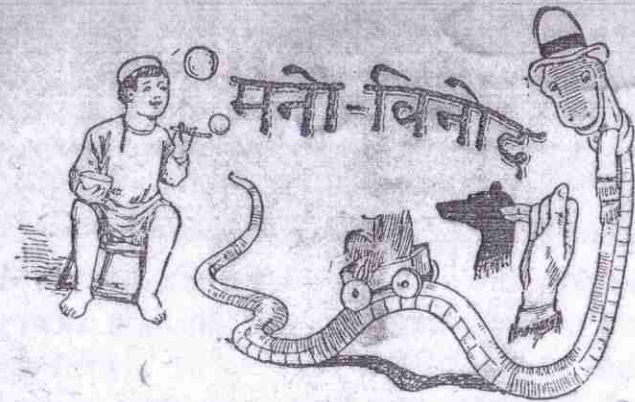 मनो-विनोद